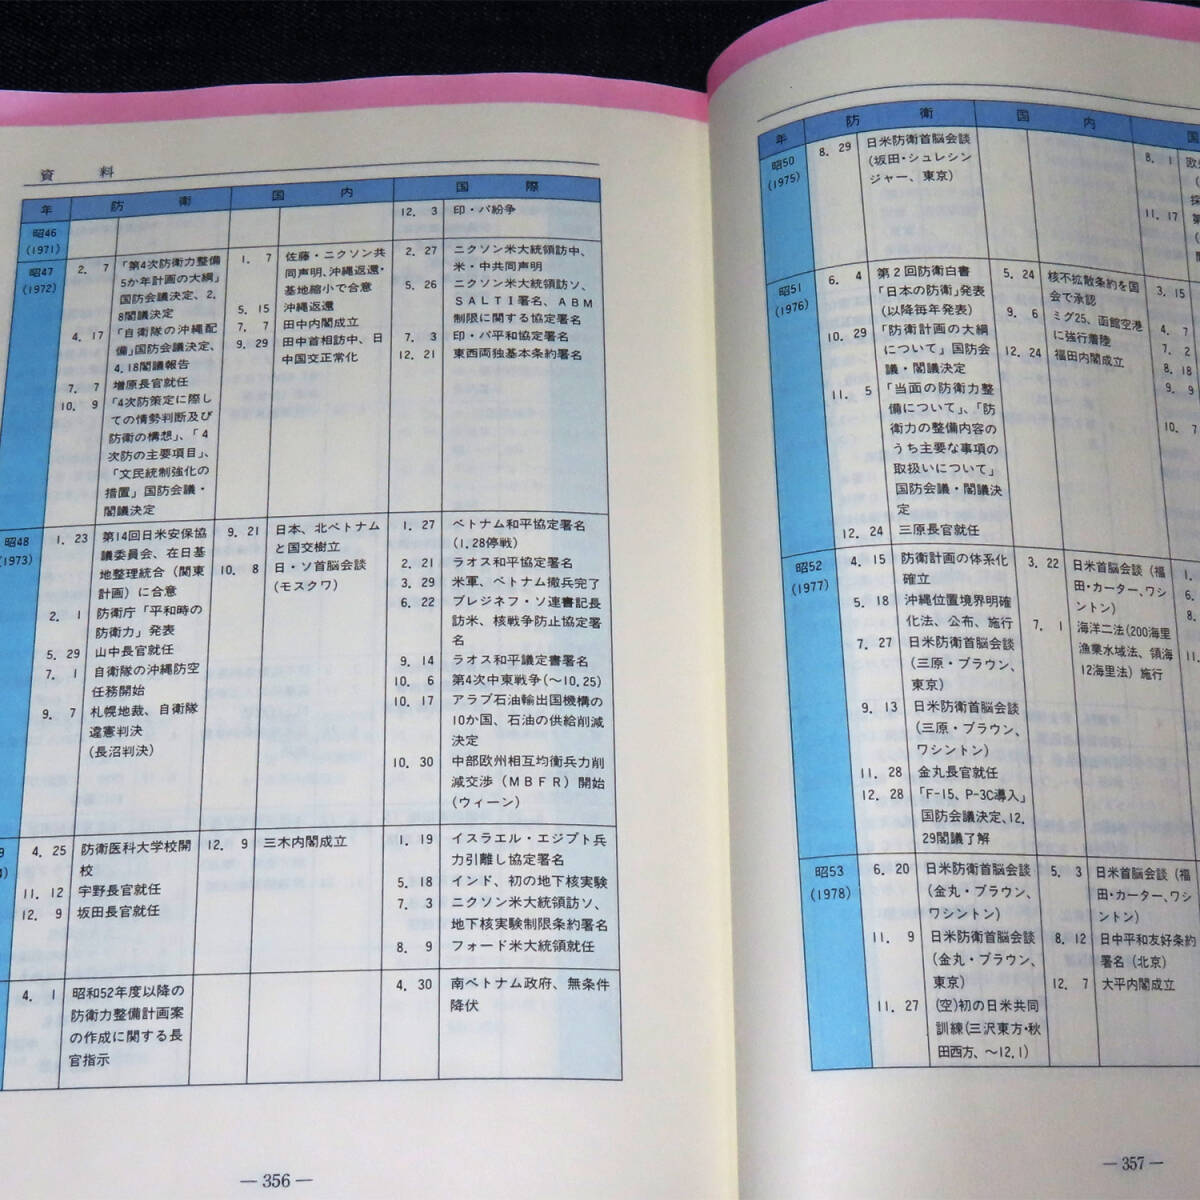 資料
年 防衛 国内 国際
昭46
(1971)
12. 3 印・パ紛争
昭47
(1972)
2. 7 「第4次防衛力整備
5か年計画の大綱」
国防会議決定、2.
8閣議決定
4. 17 「自衛隊の沖縄配
備」国防会議決定、
4.18閣議報告
7. 7 増原長官就任
10. 9 「4次防策定に際し
ての情勢判断及び
防衛の構想」、「4
次防の主要項目」、
「文民統制強化の
措置」国防会議・
閣議決定
1. 7 佐藤・ニクソン共
同声明、沖縄返還・
基地縮小で合意
5. 15 沖縄返還
7. 7 田中内閣成立
9. 29 田中首相訪中、日
中国交正常化
2. 27 ニクソン米大統領訪中、
米・中共同声明
5. 26 ニクソン米大統領訪ソ、
SALTⅠ署名、ABM
制限に関する協定署名
7. 3 印・パ平和協定署名
12. 21 東西両独基本条約署名
昭48
(1973)
1. 23 第14回日米安保協
議委員会、在日基
地整理統合（関東
計画）に合意
2. 1 防衛庁「平和時の
防衛力」発表
5. 29 山中長官就任
7. 1 自衛隊の沖縄防空
任務開始
9. 7 札幌地裁、自衛隊
違憲判決
(長沼判決)
9. 21 日本、北ベトナム
と国交樹立
10. 8 日・ソ首脳会談
(モスクワ)
1. 27 ベトナム和平協定署名
(1.28停戦)
2. 21 ラオス和平協定署名
3. 29 米軍、ベトナム撤兵完了
6. 22 ブレジネフ・ソ連書記長
訪米、核戦争防止協定署
名
9. 14 ラオス和平議定書署名
10. 6 第4次中東戦争(〜10.25)
10. 17 アラブ石油輸出国機構の
10か国、石油の供給削減
決定
10. 30 中部欧州相互均衡兵力削
減交渉（MBFR）開始
(ウィーン)
4. 25 防衛医科大学校開
校
11. 12 宇野長官就任
12. 9 坂田長官就任
12. 9 三木内閣成立
1. 19 イスラエル・エジプト兵
力引離し協定署名
5. 18 インド、初の地下核実験
7. 3 ニクソン米大統領訪ソ、
地下核実験制限条約署名
8. 9 フォード米大統領就任
4. 1 昭和52年度以降の
防衛力整備計画案
の作成に関する長
官指示
4. 30 南ベトナム政府、無条件
降伏
— 356 —
年 防衛 国内 国
昭50
(1975)
8. 29 日米防衛首脳会談
(坂田・シュレシン
ジャー、東京)
8. 1
11. 17
昭51
(1976)
6. 4 第2回防衛白書
「日本の防衛」発表
(以降毎年発表)
10. 29 「防衛計画の大綱
について」国防会
議・閣議決定
11. 5 「当面の防衛力整
備について」、「防
衛力の整備内容の
うち主要な事項の
取扱いについて」
国防会議・閣議決
定
12. 24 三原長官就任
5. 24 核不拡散条約を国
会で承認
9. 6 ミグ25、函館空港
に強行着陸
12. 24 福田内閣成立
3. 15
4. 7
7. 2
8. 18
9. 9
10. 7
昭52
(1977)
4. 15 防衛計画の体系化
確立
5. 18 沖縄位置境界明確
化法、公布、施行
7. 27 日米防衛首脳会談
(三原・ブラウン、
東京)
9. 13 日米防衛首脳会談
(三原・ブラウン、
ワシントン)
11. 28 金丸長官就任
12. 28 「F-15、P-3C導入」
国防会議決定、12.
29閣議了解
3. 22 日米首脳会談（福
田・カーター、ワシ
ントン)
7. 1 海洋二法(200海里
漁業水域法、領海
12海里法) 施行
1.
6.
8.
11.
昭53
(1978)
6. 20 日米防衛首脳会談
(金丸・ブラウン、
ワシントン)
11. 9 日米防衛首脳会談
(金丸・ブラウン、
東京)
11. 27 (空)初の日米共同
訓練(三沢東方・秋
田西方、〜12.1)
5. 3 日米首脳会談（福
田・カーター、ワシ
ントン)
8. 12 日中平和友好条約
署名（北京）
12. 7 大平内閣成立
— 357 —